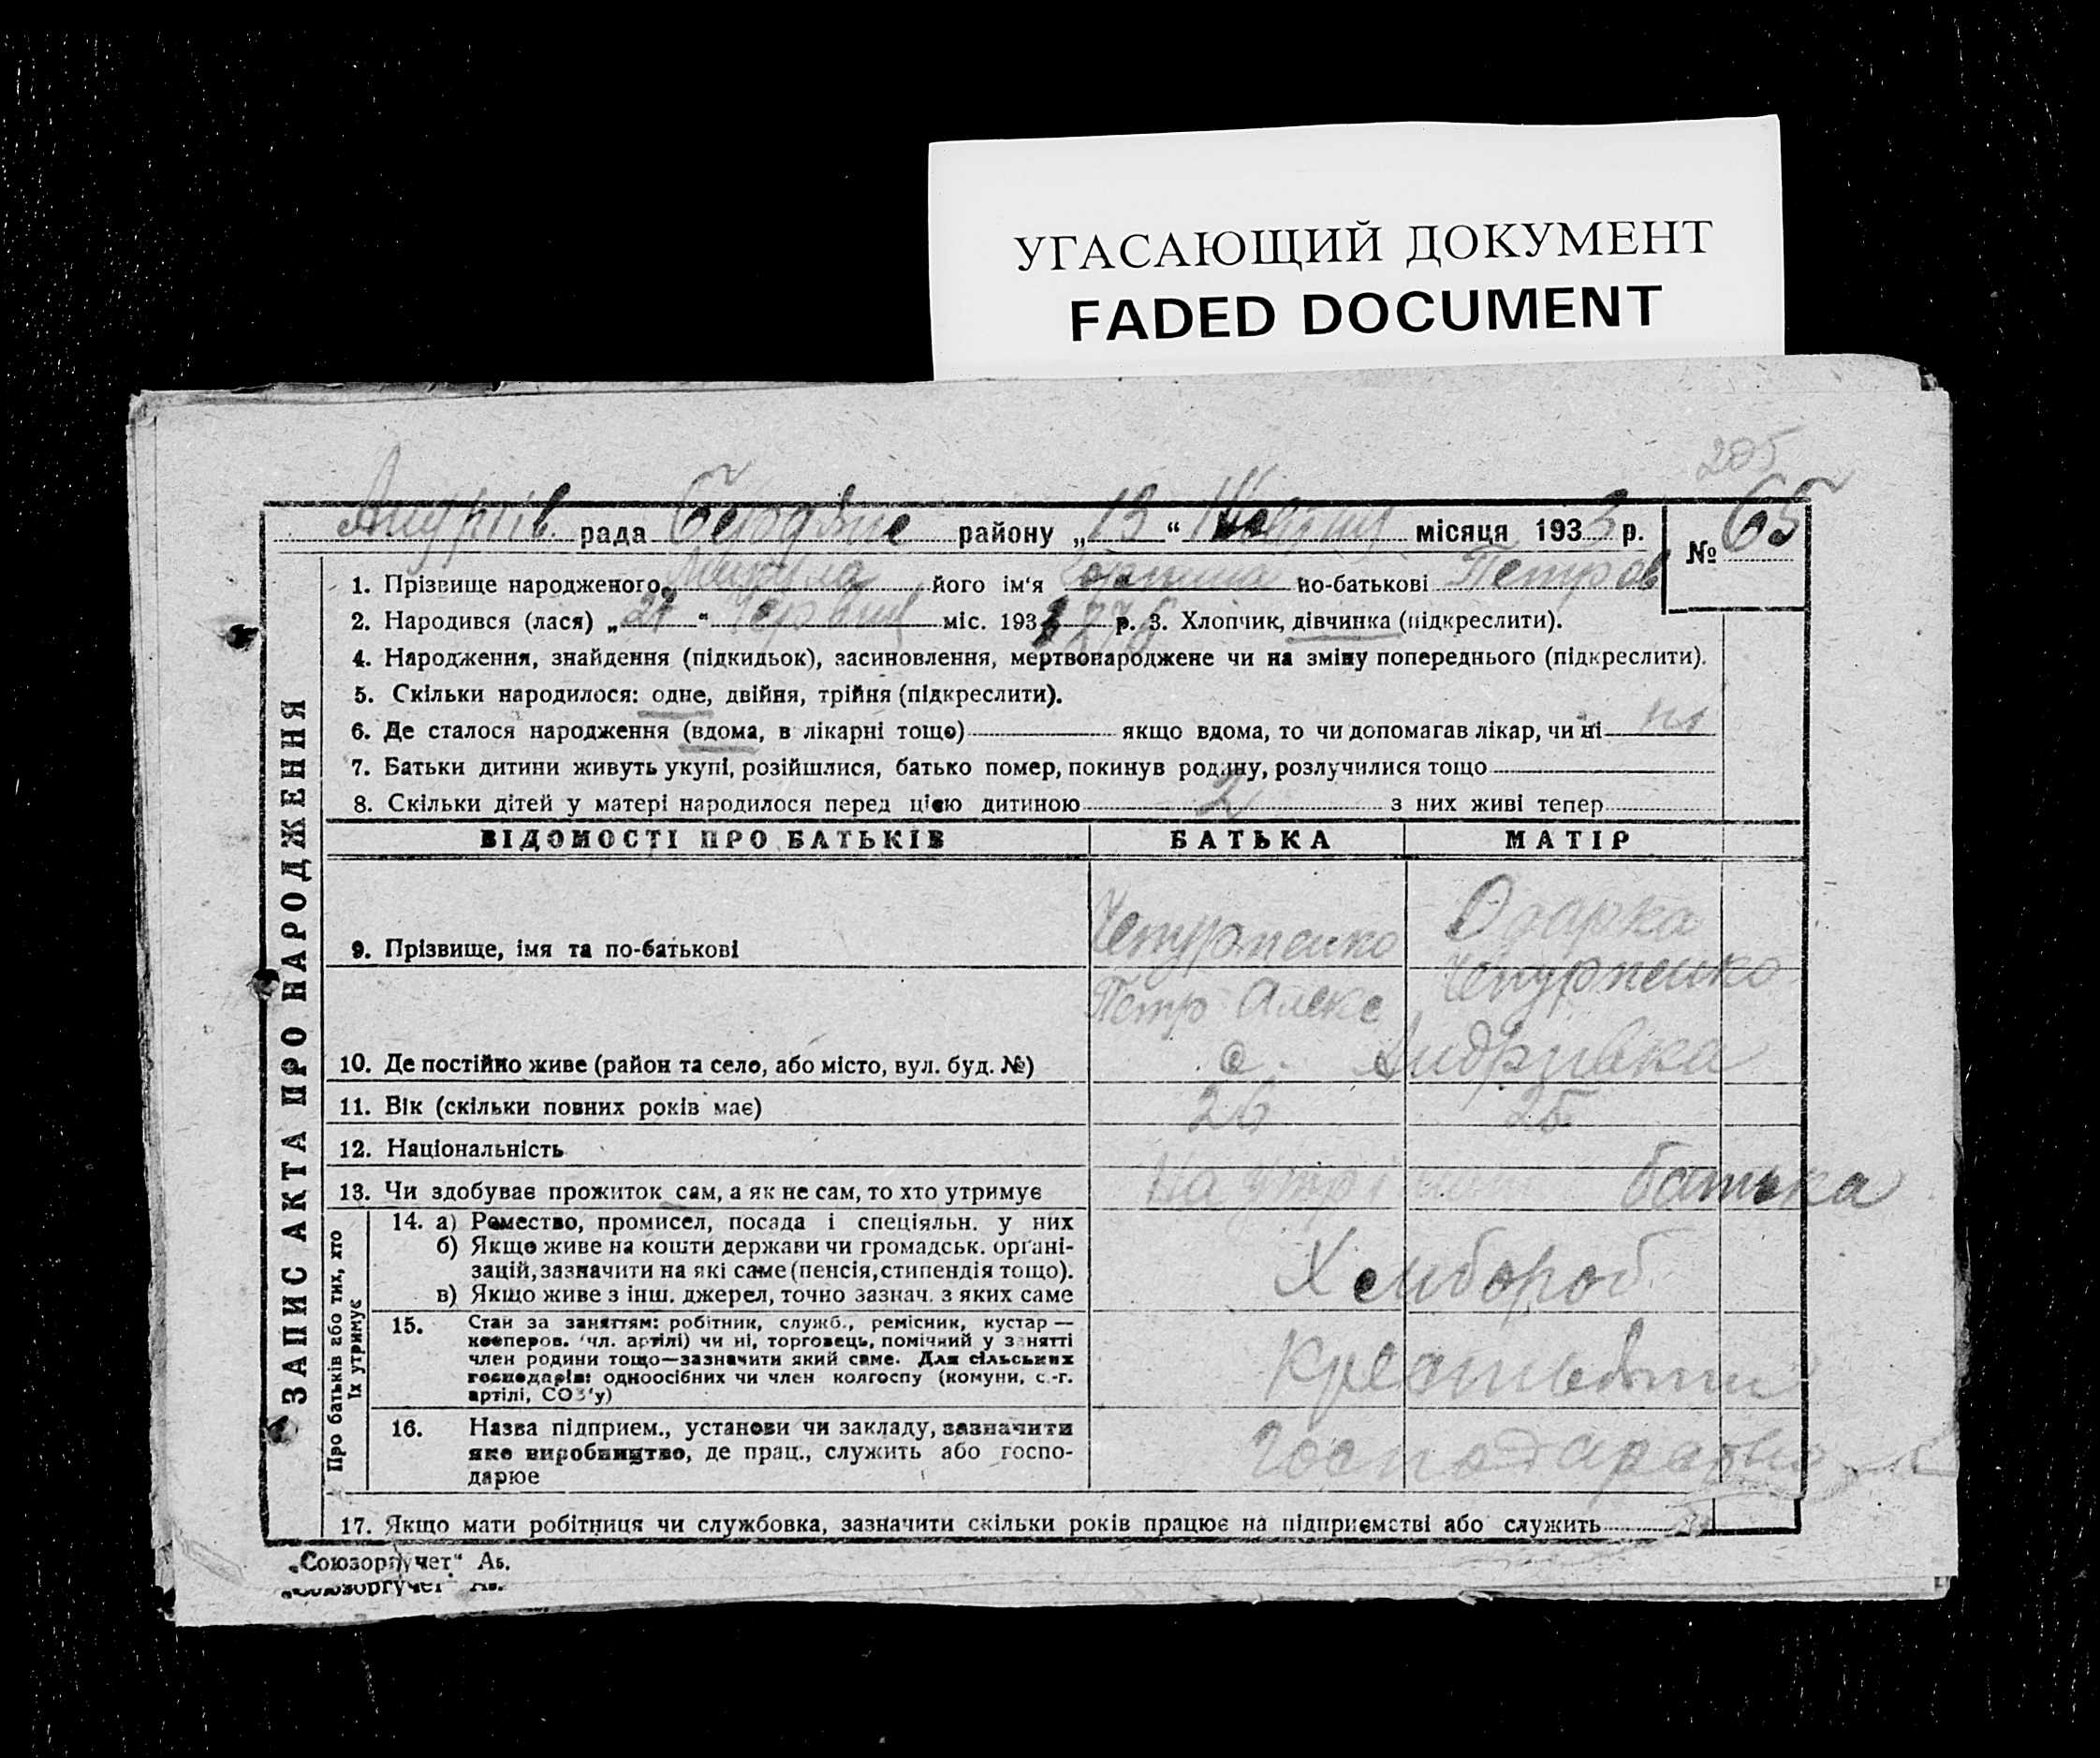 УГАСАЮЩИЙ ДОКУМЕНТ
FADED DOCUMENT
205
Андріїв рада району „13“ місяця 1933 р. № 65
1. Прізвище народженого його ім'я по-батькові Петров
2. Народився (лася) „ “ Червня міс. 193 р. 3. Хлопчик, дівчинка (підкреслити).
4. Народження, знайдення (підкидьок), засиновлення, мертвонароджене чи на зміну попереднього (підкреслити).
5. Скільки народилося: одне, двійня, трійня (підкреслити).
6. Де сталося народження (вдома, в лікарні тощо) якщо вдома, то чи допомагав лікар, чи ні ні
7. Батьки дитини живуть укупі, розійшлися, батько помер, покинув родину, розлучилися тощо
8. Скільки дітей у матері народилося перед цією дитиною 2 з них живі тепер
ВІДОМОСТІ ПРО БАТЬКІВ БАТЬКА МАТІР
Одарка
9. Прізвище, імя та по-батькові
Петр Алекс
10. Де постійно живе (район та село, або місто, вул. буд. №) с. Андріівка
11. Вік (скільки повних років має) 26 25
12. Національність
13. Чи здобуває прожиток сам, а як не сам, то хто утримує На батька
14. а) Ремество, промисел, посада і спеціяльн. у них
б) Якщо живе на кошти держави чи громадськ. органі-
зацій, зазначити на які саме (пенсія, стипендія тощо).
в) Якщо живе з інш. джерел, точно зазнач. з яких саме
Хлібороб
15. Стан за заняттям: робітник, служб., ремісник, кустар —
кооперов. (чл. артілі) чи ні, торговець, помічний у занятті
член родини тощо—зазначити який саме. Для сільських
господарів: одноосібних чи член колгоспу (комуни, с.-г.
артілі, СОЗ'у)
16. Назва підприєм., установи чи закладу, зазначити
яке виробництво, де прац., служить або госпо-
дарює
17. Якщо мати робітниця чи службовка, зазначити скільки років працює на підприємстві або служить
ЗАПИС АКТА ПРО НАРОДЖЕННЯ
Про батьків або тих, хто
їх утримує
„Союзоргучет“ Ав.
„Союзоргучет“ Ав.